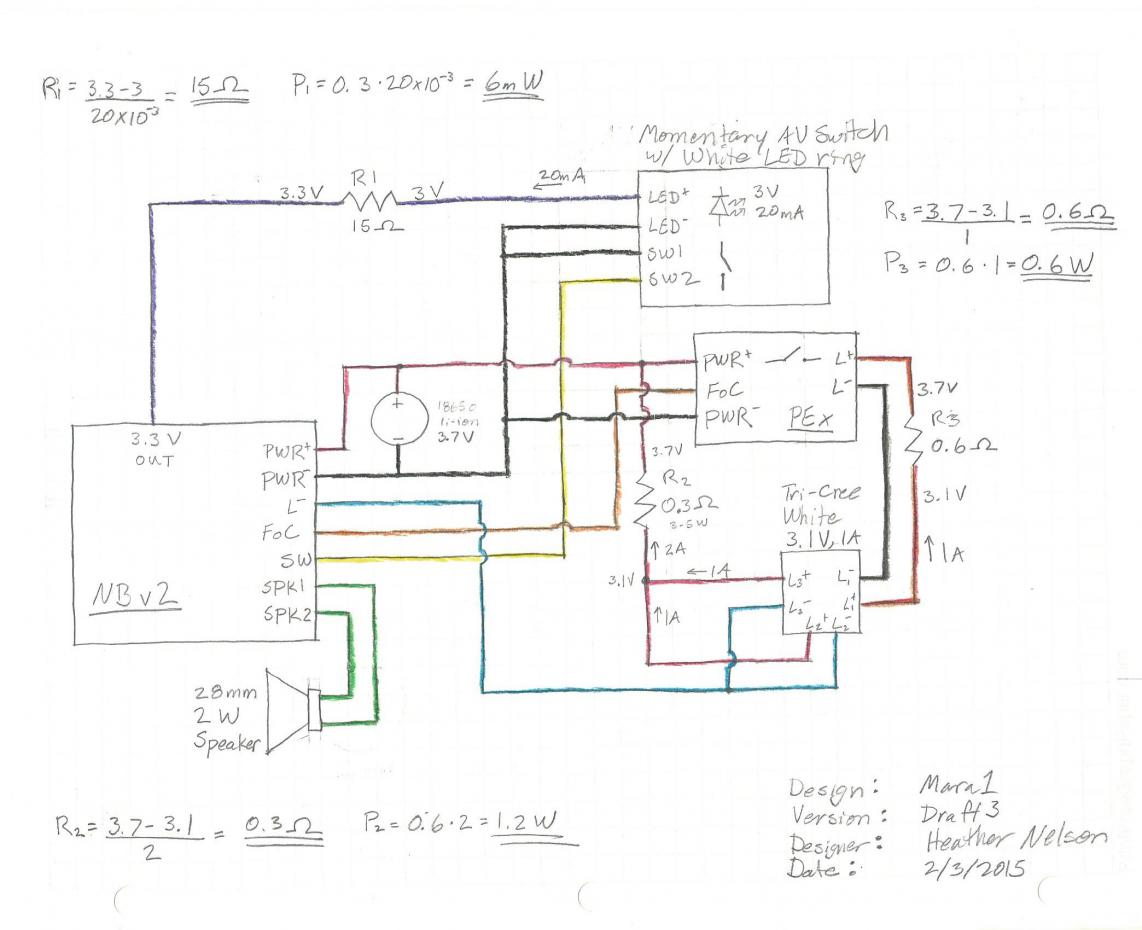 R₁ = 3.3-3 / 20x10⁻³ = 15Ω
P₁ = 0.3·20x10⁻³ = 6mW
Momentary AV Switch
w/ White LED ring
20mA
R1
3.3V
3V
15Ω
LED⁺
LED⁻
SW1
SW2
3V
20mA
R₃ = 3.7-3.1 / 1 = 0.6Ω
P₃ = 0.6·1 = 0.6W
PWR⁺
FoC
PWR⁻
L⁺
L⁻
PEx
+
−
18650
li-ion
3.7V
3.7V
R3
0.6Ω
3.1V
↑1A
3.3V
OUT
PWR⁺
PWR⁻
L⁻
FoC
SW
SPK1
SPK2
NBv2
3.7V
R₂
0.3Ω
3-5W
↑2A
←1A
3.1V
↑1A
Tri-Cree
White
3.1V, 1A
L₃⁺
L₃⁻
L₁⁻
L₁⁺
L₂⁺
L₂⁻
28mm
2W
Speaker
R₂ = 3.7-3.1 / 2 = 0.3Ω
P₂ = 0.6·2 = 1.2W
Design: Mara1
Version: Draft 3
Designer: Heather Nelson
Date: 2/3/2015